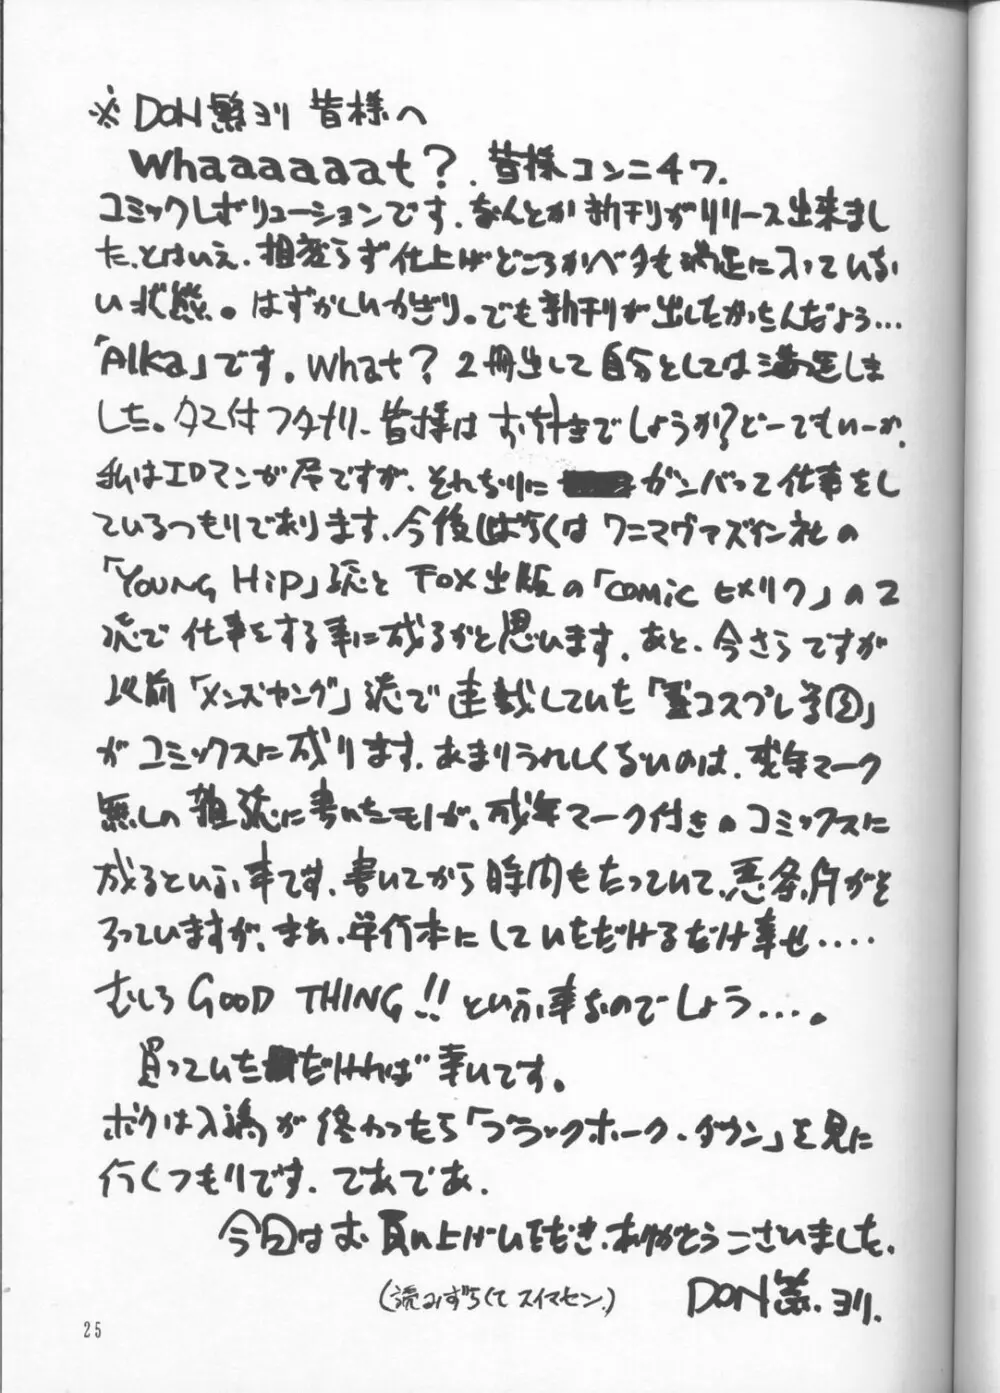 ※DON繁ヨリ 皆様へ
Whaaaaaat?. 皆様コンニチワ.
コミックレボリューションです. なんとか新刊がリリース出来まし
た. とはいえ. 相変らず仕上げどころかベタも満足に入っていな
い状態。はずかしいかぎり。でも新刊が出したかったんだよう...
「Alka」です。What? 2冊出して自分としては満足しま
した。タマ付フタナリ. 皆様はお好きでしょうか? どーでもいーか.
私はエロマンガ屋ですが、それなりに ガンバって仕事をし
ているつもりであります. 今後しばらくは ワニマガヅィン社の
「YOUNG HiP」誌と FOX出版の「comic ヒメクリ」の2
誌で仕事をする事に成るかと思います. あと、今さらですが
以前「メンズヤング」誌で連載していた「コスプレ学園」
がコミックスに成ります. あまりうれしくないのは、成年マーク
無しの雑誌に書いたモノが、成年マーク付きのコミックスに
成るという事です. 書いてから時間もたっていて、悪条件がそ
ろっていますが、まあ、単行本にしていただけるだけ幸せ....
むしろ GOOD THING!! という事なのでしょう....。
買っていただければ幸いです。
ボクは入稿が終わったら「ブラックホーク・ダウン」を見に
行くつもりです. であであ.
今回はお買い上げいただき、ありがとうございました.
(読みずらくて スイマセン.)
DON繁.ヨリ.
25